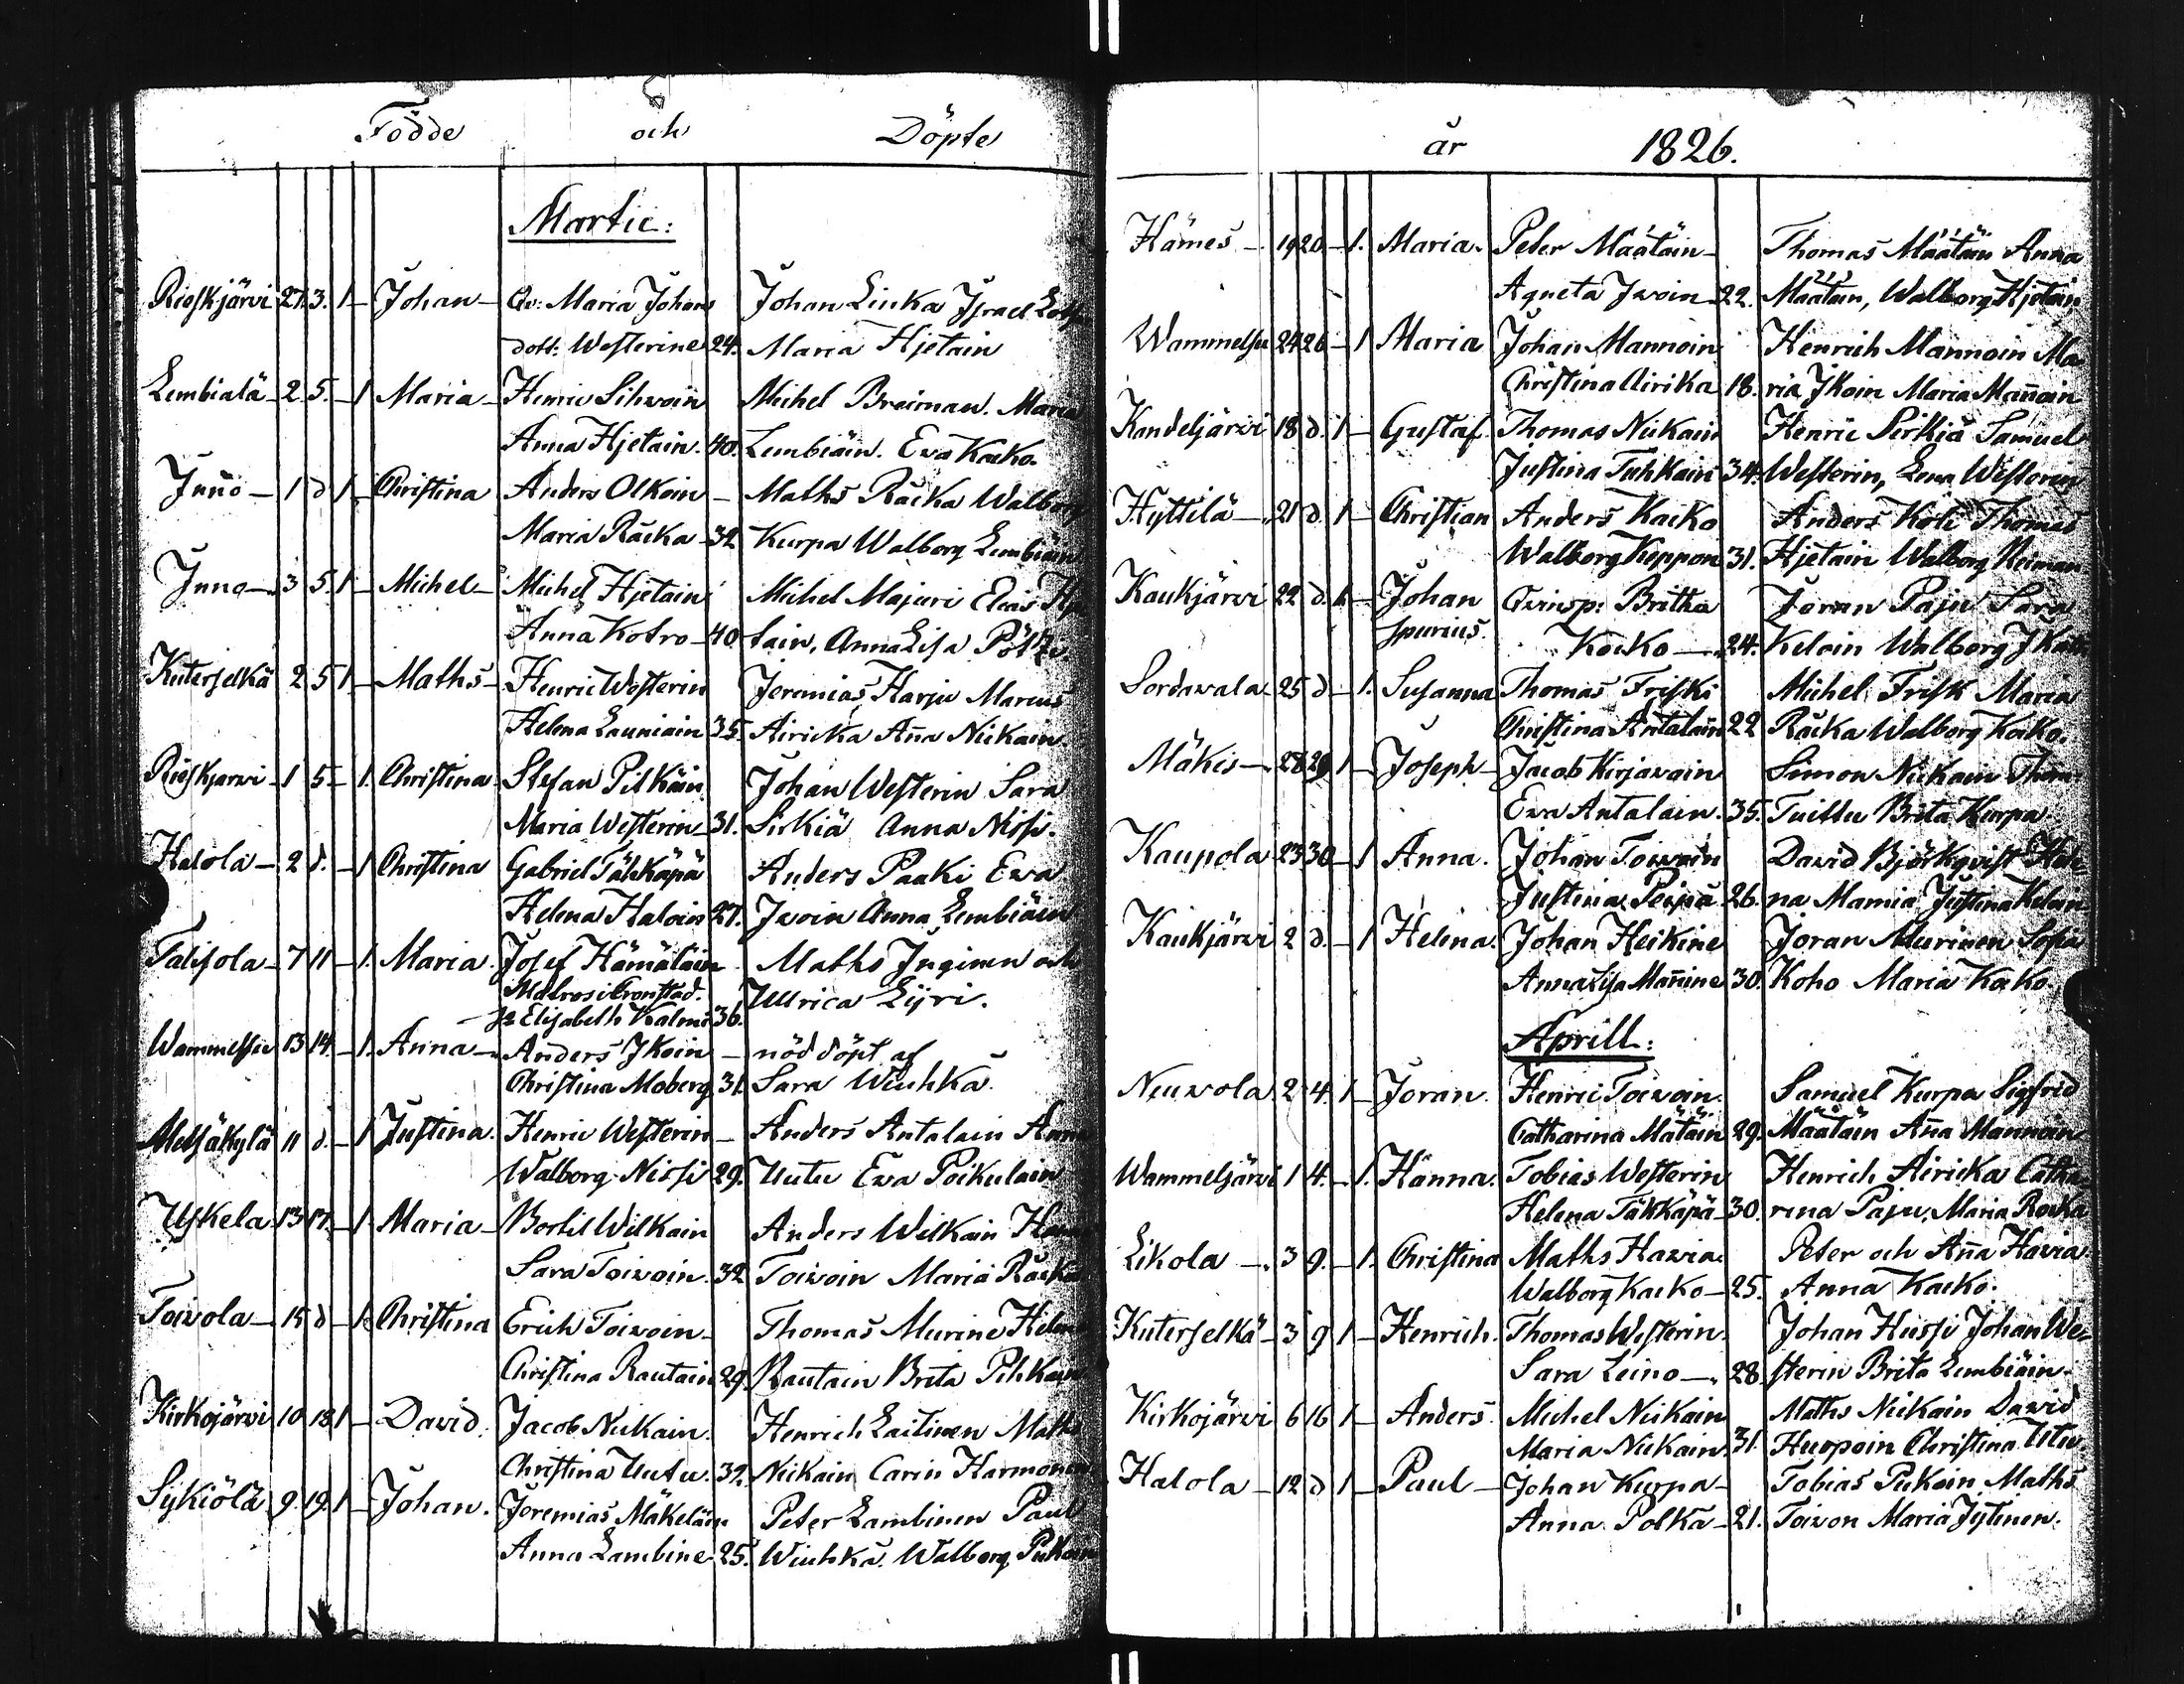 Födde och Döpte
Martii:
Rieskjärvi 27. 3. 1 – Johan – Qv: Maria Johans Johan Linka Israel
dott: Westerine 24. Maria Hjetain
Lembialä 2 5. – 1 Maria – Henric Sihvoin Michel Breiman. Maria
Anna Hjetain. 40. Lembiäin. Eva Kaiko.
Inno – 1 d 1 – Christina Anders Olkoin – Maths Räikä Walborg
Maria Räikä – 32 Kurpa Walborg Lembiäin
Inno – 3 5. 1 – Michel – Michel Hjetain Michel Majuri Elias Hje
Anna Kotro – 40 tain, Anna Lisa
Kuterselkä 2 5 1 – Maths – Henric Westerin Jeremias Harju Marcus
Helena Launiain 35. Airicka Anna Niikain.
Rieskjärvi – 1 5 – 1. Christina Stefan Pilkäin. Johan Westerin Sara
Maria Westerin – 31. Sirkiä Anna Nissi.
Halola – 2 d. – 1 Christina Gabriel Tähkäpä Anders Paaki Eva
Helena Haloin 27. Ivoin Anna Lembiäin
Talisola – 7 11 – 1. Maria. Josef Hämäläin Maths Inginen och
Matros i Cronstad. Ullrica Lijri.
Elisabeth Kalmi 36.
Wammelsu 13 14. – 1. Anna – Anders Ikoin – nöddöpt af
Christina Moberg 31. Sara Wiuhka.
Metsäkylä 11 d. – 1 Justina. Henric Westerin – Anders Antalain Anna
Walborg Nissi 29. Uutu Eva Poikulain
Uskela 13 17. – 1 Maria – Bertil Wilkain Anders Wilkain
Sara Toivoin. 32 Toivoin Maria Räikä
Toivola – 15 d – 1. Christina Erich Toivoin – Thomas Murine Helena
Christina Rautain 29. Rautain Brita Pihkain
Kirkojärvi 10 18 1 – David. Jacob Niikain. Henrich Laitinen Maths
Christina Uutu. 32. Niikain Carin Harmonen
Sykiölä 9. 19. 1 – Johan. Jeremias Mäkeläin Peter Lambinen Paul
Anna Lambine 25. Wiuhka. Walborg Pukain
år 1826.
Hämes – 19 20. – 1. Maria. Peter Määtäin – Thomas Määtäin Anna
Agneta Ivoin – 22. Määtäin, Walborg Hjetain
Wammelsu 24 26 – 1 Maria Johan Mannoin Henrich Mannoin Ma
Christina Airika 18. ria Ikoin Maria Mannoin
Kandeljärvi 18 d. 1 – Gustaf Thomas Niikain Henric Sirkiä Samuel
Justina Tuhkain 34. Westerin, Lena Westerin
Hyttilä – 21 d. 1 – Christian Anders Kaiko Anders Koli Thomas
Walborg Keppon 31. Hjetain Walborg Neiman
Kaukjärvi 22 d. 1 – Johan Qvinsp: Britha Joran Paju Sara
spurius. Kaiko – 24. Keloin Walborg
Sordavala – 25 d – 1. Susanna Thomas Friski Michel Frisk Maria
Christina Antalain 22 Räikä Walborg Kaiko.
Mäkis – 28 29 1 – Joseph – Jacob Kirjavain Simon Niikain Thom:
Eva Antalain. 35. Tuittu Brita Kurpa
Kaupola 23 30 – 1 Anna. Johan Toivoin David Björkqvist Hele
Justina Peipä 26. na Mamia Justina Keloin
Kaukjärvi 2 d. – 1 Helena. Johan Heikine Joran Murinen Sofia
Anna Lisa Mannine 30. Koho Maria Kaiko
Aprill:
Neuvola 2 4. 1 – Joran. Henric Toivoin. Samuel Kurpa Sigfrid
Catharina Mätäin 29. Määtäin Anna Mannoin
Wammeljärvi 1 4. – 1. Hanna. Tobias Westerin Henrich Airicka Catha
Helena Täkkäpä – 30. rina Paju, Maria Rocka
Likola – 3 9. – 1. Christina Maths Havia. Peter och Anna Havia.
Walborg Kaiko – 25. Anna Kaiko.
Kuterselkä – 3 9 1 – Henrich. Thomas Westerin. Johan Hussi Johan We=
Sara Leino – 28. sterin Brita Lembiäin.
Kirkojärvi 6 16 1 – Anders. Michel Niikain Maths Niikain David
Maria Niikain. 31. Huopoin Christina Utu
Halola – 12 d 1 – Paul – Johan Kurpa – Tobias Pukain Maths
Anna Polka – 21. Toivon Maria Jytinen.